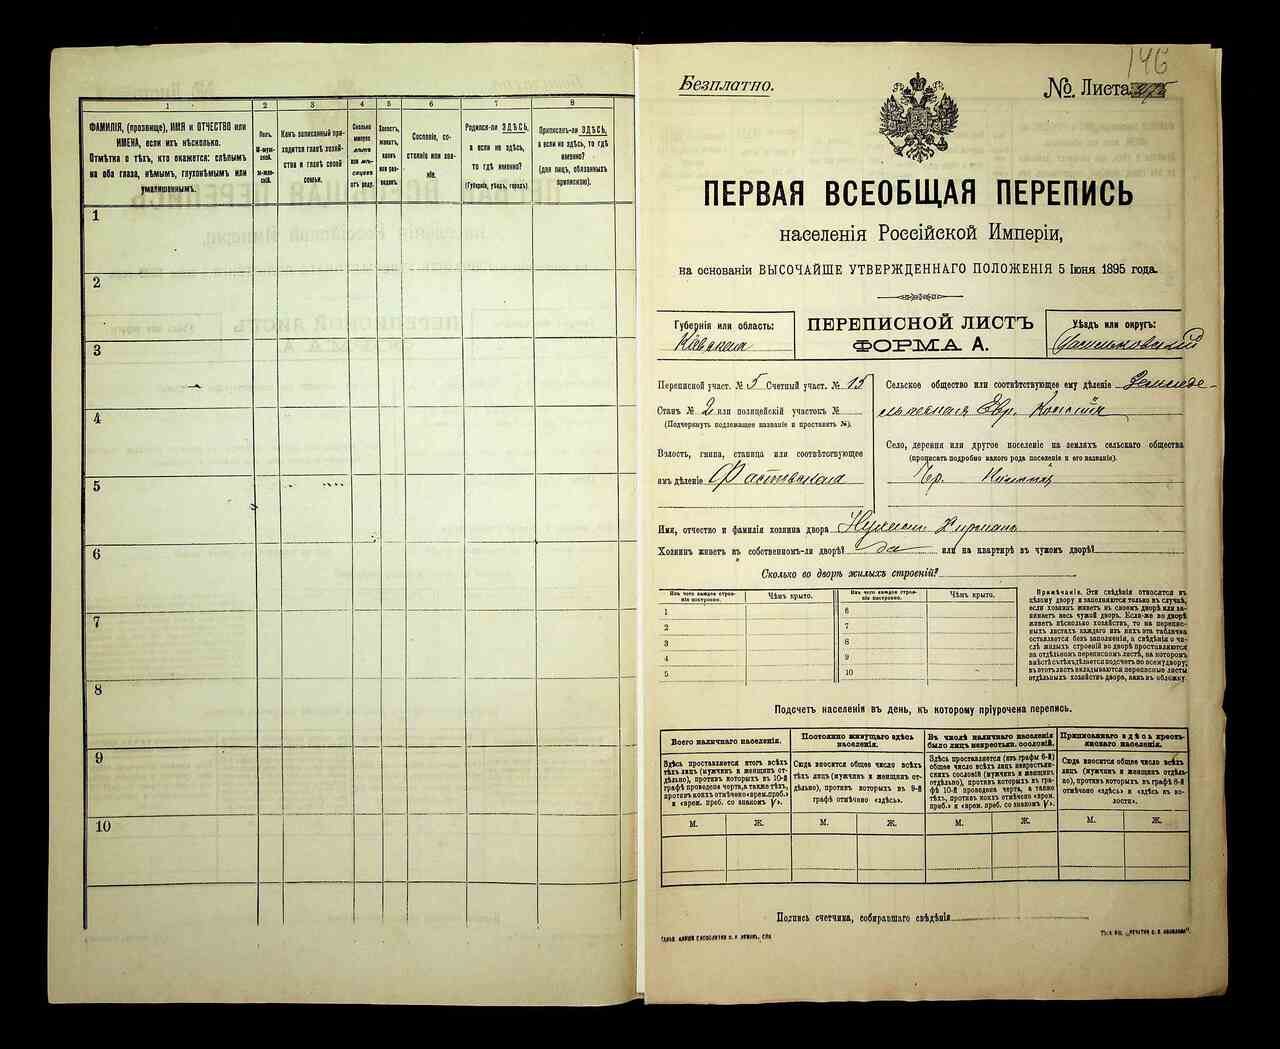 1
2
3
4
5
6
7
8
ФАМИЛІЯ, (прозвище), ИМЯ и ОТЧЕСТВО или
ИМЕНА, если ихъ нѣсколько.
Отмѣтка о тѣхъ, кто окажется: слѣпымъ
на оба глаза, нѣмымъ, глухонѣмымъ или
умалишеннымъ.
Полъ.
М-муж-
ской.
Ж-жен-
скій.
Какъ записанный при-
ходится главѣ хозяй-
ства и главѣ своей
семьи.
Сколько
минуло
лѣтъ
или мѣ-
сяцевъ
отъ роду.
Холостъ,
женатъ,
вдовъ
или раз-
веденъ.
Сословіе, со-
стояніе или зва-
ніе.
Родился-ли ЗДѢСЬ,
а если не здѣсь,
то гдѣ именно?
(Губернія, уѣздъ, городъ).
Приписанъ-ли ЗДѢСЬ,
а если не здѣсь, то гдѣ
именно?
(для лицъ, обязанныхъ
припискою).
1
2
3
4
5
6
7
8
9
10
146
Безплатно.
№. Листа
ПЕРВАЯ ВСЕОБЩАЯ ПЕРЕПИСЬ
населенія Россійской Имперіи,
на основаніи ВЫСОЧАЙШЕ УТВЕРЖДЕННАГО ПОЛОЖЕНІЯ 5 Іюня 1895 года.
Губернія или область:
Кіевская
ПЕРЕПИСНОЙ ЛИСТЪ
ФОРМА А.
Уѣздъ или округъ:
Васильковскій
Переписной участ. № 5 Счетный участ. № 15
Станъ № 2 или полицейскій участокъ №
(Подчеркнуть подлежащее названіе и проставить №).
Волость, гмина, станица или соотвѣтствующее
имъ дѣленіе Фастовская
Сельское общество или соотвѣтствующее ему дѣленіе Земледѣ-
льческая Евр. Колонія
Село, деревня или другое поселеніе на земляхъ сельскаго общества
(прописать подробно какого рода поселеніе и его названіе).
Имя, отчество и фамилія хозяина двора
Хозяинъ живетъ въ собственномъ-ли дворѣ? да или на квартирѣ въ чужомъ дворѣ?
Сколько во дворѣ жилыхъ строеній?
Изъ чего каждое строе-
ніе построено.
Чѣмъ крыто.
Изъ чего каждое строе-
ніе построено.
Чѣмъ крыто.
1
2
3
4
5
6
7
8
9
10
Примѣчаніе. Эти свѣдѣнія относятся къ
цѣлому двору и заполняются только въ случаѣ,
если хозяинъ живетъ въ своемъ дворѣ или за-
нимаетъ весь чужой дворъ. Если-же во дворѣ
живетъ нѣсколько хозяйствъ, то на перепис-
ныхъ листахъ каждаго изъ нихъ эта табличка
оставляется безъ заполненія, а свѣдѣнія о чи-
слѣ жилыхъ строеній во дворѣ проставляются
на отдѣльномъ переписномъ листѣ, на которомъ
вмѣстѣ съ тѣмъ дѣлается подсчетъ по всему двору;
въ этотъ листъ вкладываются переписные листы
отдѣльныхъ хозяйствъ двора, какъ въ обложку.
Подсчетъ населенія въ день, къ которому пріурочена перепись.
Всего наличнаго населенія.
Здѣсь проставляется итогъ всѣхъ
тѣхъ лицъ (мужчинъ и женщинъ от-
дѣльно), противъ которыхъ въ 10-й
графѣ проведена черта, а также тѣхъ,
противъ коихъ отмѣчено «врем. преб.»
и «врем. преб. со знакомъ V».
Постоянно живущаго здѣсь
населенія.
Сюда вносится общее число всѣхъ
тѣхъ лицъ (мужчинъ и женщинъ от-
дѣльно), противъ которыхъ въ 9-й
графѣ отмѣчено «здѣсь».
Въ числѣ наличнаго населенія
было лицъ некрестьян. сословій.
Здѣсь проставляется (изъ графы 6-й)
общее число всѣхъ лицъ некрестьян-
скихъ сословій (мужчинъ и женщинъ
отдѣльно), противъ которыхъ въ гра-
фѣ 10-й проведена черта, а также
тѣхъ, противъ коихъ отмѣчено «врем.
преб.» и «врем. преб. со знакомъ V».
Приписаннаго здѣсь кресть-
янскаго населенія.
Сюда вносится общее число всѣхъ
лицъ (мужчинъ и женщинъ отдѣль-
но), противъ которыхъ въ графѣ 8-й
отмѣчено «здѣсь» и «здѣсь въ во-
лости».
М. Ж. М. Ж. М. Ж. М. Ж.
Подпись счетчика, собиравшаго свѣдѣнія